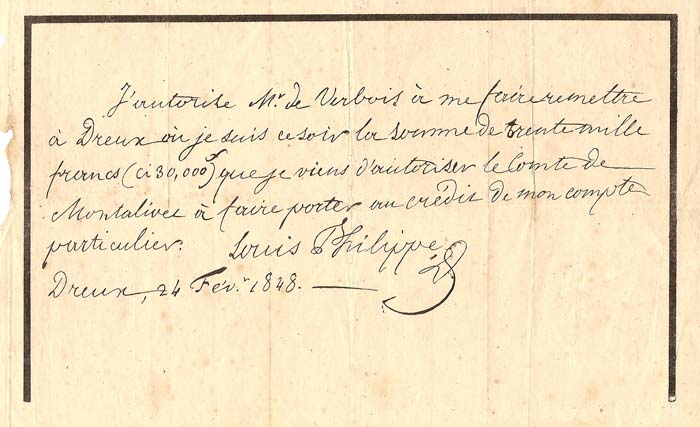 J'autorise Mr. de Verbois à me faire remettre
à Dreux où je suis ce soir la somme de trente mille
francs (ci 30,000f) que je viens d'autoriser le Comte de
Montalivet à faire porter au crédit de mon compte
particulier. Louis Philippe
Dreux, 24 Févr. 1848.